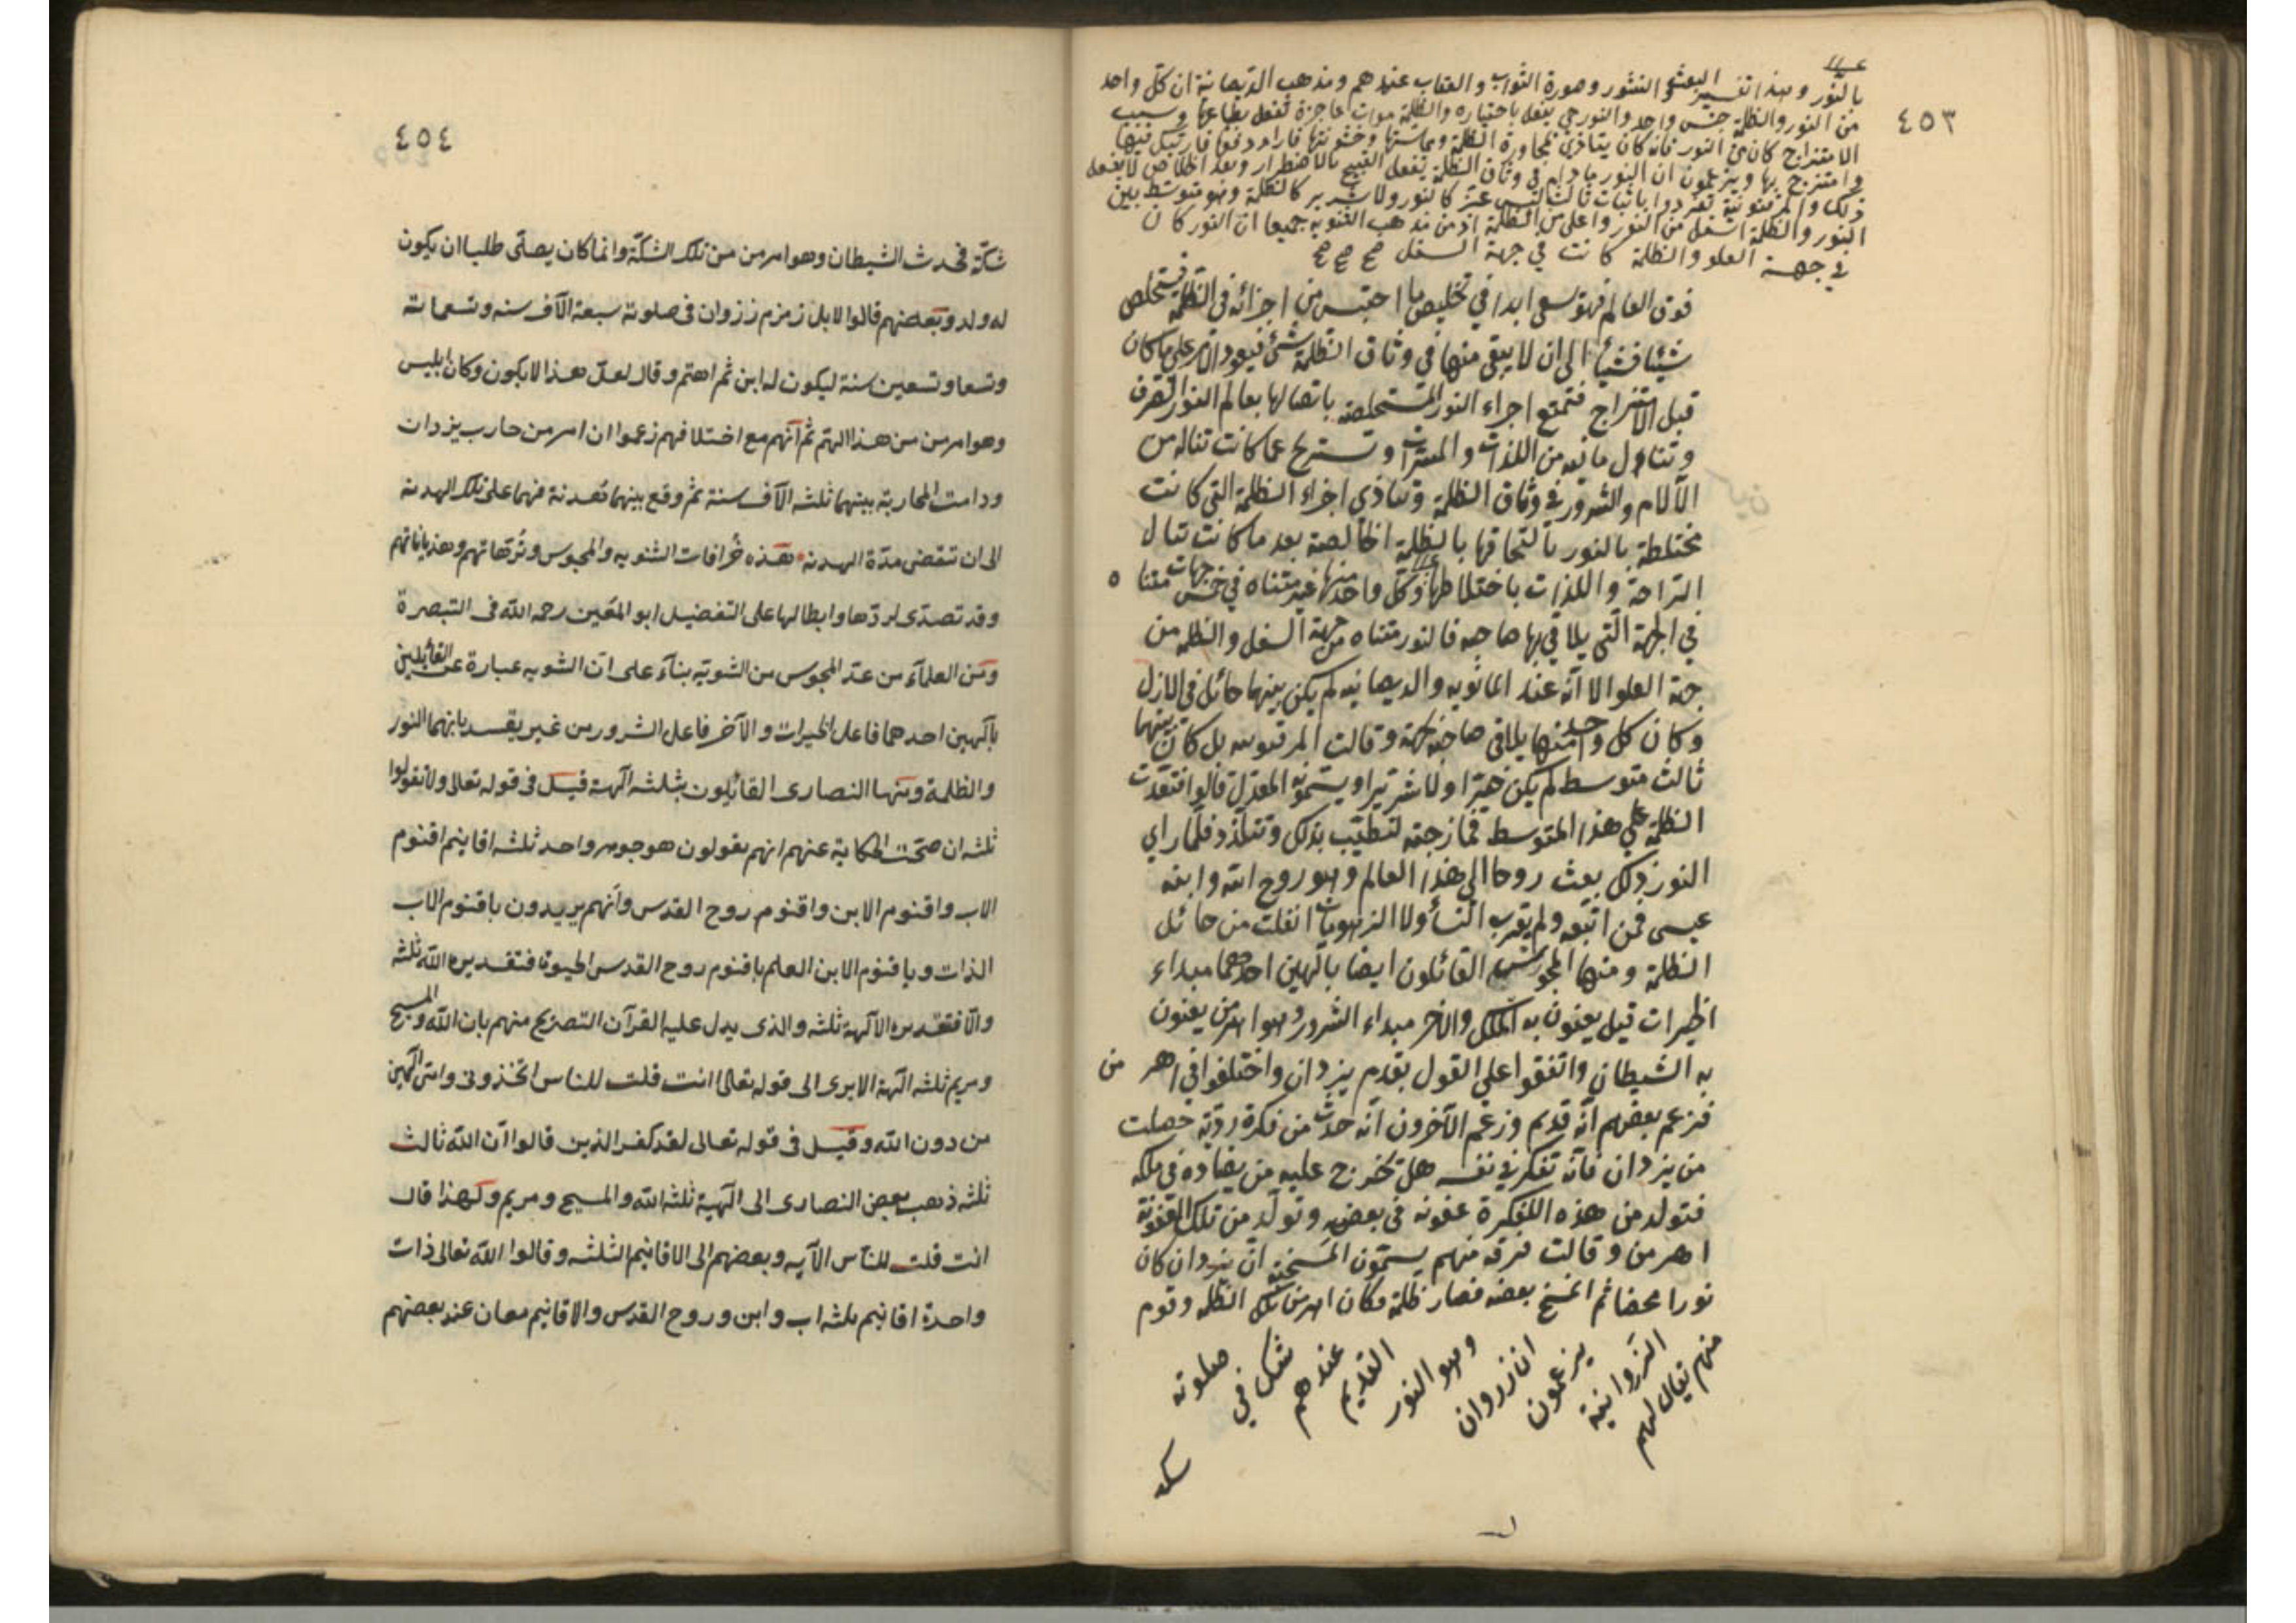 ٤٥٣
بالنور وهذا تفسير البعث والنشور وصورة الثواب والعقاب عندهم ومذهب الديصانية ان كل واحد
من النور والظلمة جنس واحد والنور حي يفعل باختياره والظلمة موات عاجزة تفعل بطباعها وسبب
الامتزاج كان من النور فانه كان يتأذى بمجاورة الظلمة ومماستها وخشونتها فاراد دفعها فارتبك فيها
وامتزج بها ويزعمون ان النور مادام في وثاق الظلمة يفعل القبيح بالاضطرار وبعد الخلاص لا يفعل
ذلك والمرقونية تفردوا باثبات ثالث ليس بخير كالنور ولا شرير كالظلمة وهو متوسط بين
النور والظلمة اسفل من النور واعلى من الظلمة اذ من مذهب الثنويه جميعا ان النور كان
في جهة العلو والظلمة كانت في جهة السفل صح صح صح
فوق العالم فهو يسعى ابدا في تخليص ما احتبس من اجزائه في الظلمة فيستخلص
شيئا فشيئا الى ان لا يبقى منها في وثاق الظلمة شئ فيعود الامر على ما كان
قبل الامتزاج فتمتع اجزاء النور المستخلصة باتصالها بعالم النور الصرف
وتتناول ما فيه من اللذات والمسرات وتستريح عما كانت تناله من
الآلام والشرور في وثاق الظلمة وتتاذي اجزاء الظلمة التي كانت
مختلطة بالنور بالتحاقها بالظلمة الخالصة بعد ما كانت تنال
الراحة واللذات باختلاطها وكل واحد منها غير متناه في خمس جهات متنا ه
في الجهة التي يلاقي بها صاحبه فالنور متناه من جهة السفل والظلمه من
جهة العلو الا انه عند المانويه والديصانيه لم يكن بينهما حائل في الازل
وكان كل واحد منهما يلاقي صاحبه بجهة وقالت المرقيونيه بل كان بينهما
ثالث متوسط لم يكن خيرا ولا شريرا ويسمونه المعدل قالوا فتعدت
الظلمة على هذا المتوسط فمازجته لتطيب بذلك وتتلذذ فلما راي
النور ذلك بعث روحا الى هذا العالم وهو روح الله وابنه
عيسى فمن اتبعه ولم يقرب النسأ ولا الزهومات انفلت من حبائل
الظلمة ومنها المجوس القائلون ايضا بآلهين احدهما مبداء
الخيرات قيل يعنون به الملك والآخر مبداء الشرور وهو اهرمن يعنون
به الشيطان واتفقوا على القول بقدم يزدان واختلفوا في اهر من
فزعم بعضهم انه قديم وزعم الآخرون انه حدث من فكرة رديّة حصلت
من يزدان فانه تفكر في نفسه هل يخرج عليه من يضاده في ملكه
فتولد من هذه الفكرة عفونه في بعضه وتولد من تلك العفونة
اهرمن وقالت فرقه منهم يسمون المسخيه ان يزدان كان
نورا محضا ثم انمسخ بعضه فصار ظلمة فكان اهرمن تلك الظلمه وقوم
منهم يقال لهم
الزروانية
يزعمون
ان زروان
وهو النور
القديم
عندهم
شك في
صلوته
شكه
٤٥٤
شكّة فحدث الشيطان وهو اهرمن من تلك الشكّة وانما كان يصلّى طلبا ان يكون
له ولد وبعضهم قالوا لا بل زمزم زروان فى صلوته سبعة الآف سنه وتسعمائة
وتسعا وتسعين سنة ليكون له ابن ثم اهتم وقال لعلّ هذا لا يكون وكان ابليس
وهو اهرمن من هذا الهتم ثم انهم مع اختلافهم زعموا ان اهرمن حارب يزدان
ودامت المحاربة بينهما ثلثه الآف سنة ثم وقع بينهما هدنة فهما على تلك الهدنه
الى ان تنقضى مدّة الهدنه هذه خرافات الثنويه والمجوس وتُرّهاتهم وهذياناتهم
وقد تصدّى لردّها وابطالها على التفضيل ابو المعين رحمه الله فى التبصرة
ومن العلمآء من عدّ المجوس من الثنويه بنآء على ان الثنويه عبارة عن القائلين
بآلهين احدهما فاعل الخيرات والآخر فاعل الشرور من غير تقييد بانهما النور
والظلمة ومنها النصارى القائلون بثلثه آلهة قيل فى قوله تعالى ولا تقولوا
ثلثه ان صحّت الحكاية عنهم انهم يقولون هو جوهر واحد ثلثه اقانيم اقنوم
الاب واقنوم الابن واقنوم روح القدس وانهم يريدون باقنوم الاب
الذات وباقنوم الابن العلم باقنوم روح القدس الحيوة فتقديره الله ثلثه
والّا فتقديره الآلهة ثلثه والذى يدل عليه القرآن التصريح منهم بان الله والمسيح
ومريم ثلثه آلهة الا يرى الى قوله تعالى اانت قلت للناس اتخذونى وامى آلهين
من دون الله وقيل فى قوله تعالى لقد كفر الذين قالوا ان الله ثالث
ثلثه ذهب بعض النصارى الى آلهية ثلثه الله والمسيح ومريم ولهذا قال
اانت قلت للناس الآيه وبعضهم الى الاقانيم الثلثه وقالوا الله تعالى ذات
واحدة اقانيم ثلثه اب وابن وروح القدس والاقانيم معان عند بعضهم